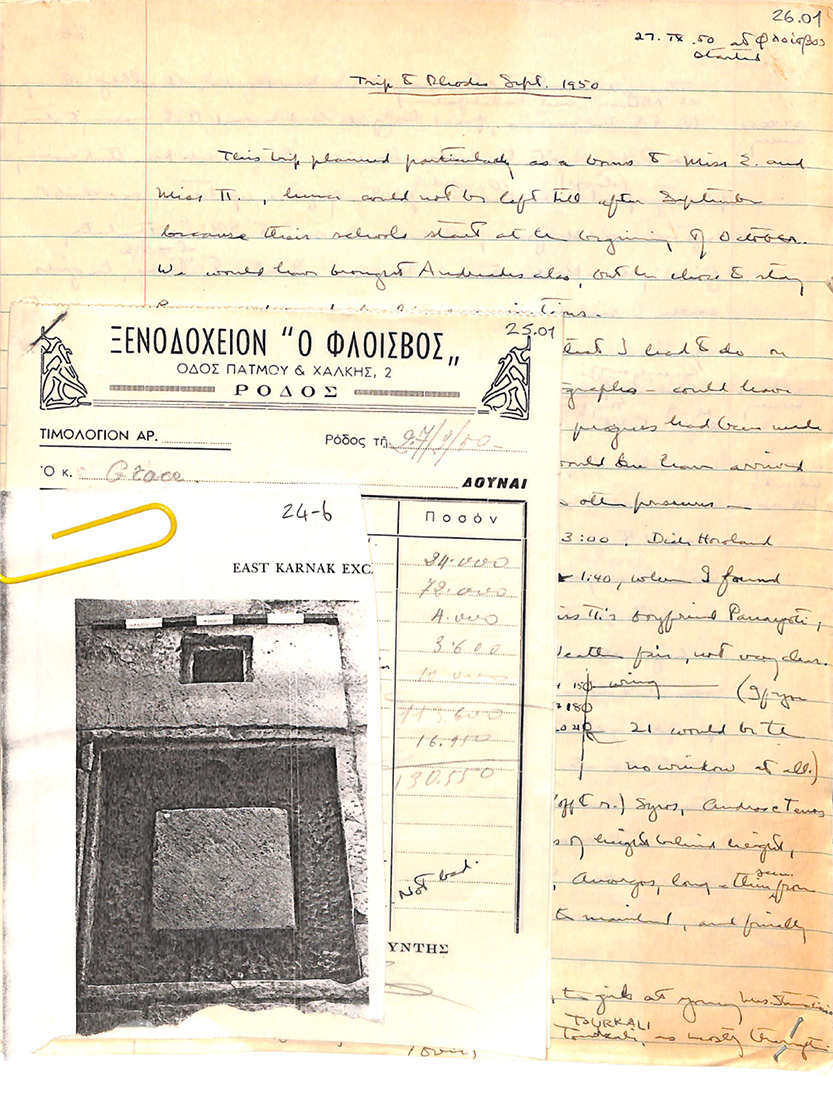 26.01
27.IX.50 at Φλοίσβος
started
Trip to Rhodes Sept. 1950
This trip planned particularly as a bonus to Miss E. and
Miss Π., hence could not be left till after September
because their schools start at the beginning of October.
We would have brought Andreades also, but he chose to stay
25.01
ΞΕΝΟΔΟΧΕΙΟΝ "Ο ΦΛΟΙΣΒΟΣ„
ΟΔΟΣ ΠΑΤΜΟΥ & ΧΑΛΚΗΣ, 2
ΡΟΔΟΣ
ΤΙΜΟΛΟΓΙΟΝ ΑΡ.
Ρόδος τῇ 27/9/50
Ὁ κ. Grace.
ΔΟΥΝΑΙ
Ποσόν
34.000
72.000
4.000
3.600
113.600
16.950
130.550
Not bad.
ΥΝΤΗΣ
24-6
EAST KARNAK EXC
that I had to do on
graphs – could have
progress had been made
would have arrived
other pressures –
3:00. Dick Howland
1:40, when I found
Miss Π's boyfriend Panayoti,
not very clear.
150 wing (If you
180
21 would be the
no window at all.)
off to r.) Syros, Andros & Tenos
of height behind height,
seen
Amorgos, long & thin from
the mainland, and finally
the girls at young Mrs.
TOURKALI
Tourkali, as mostly through